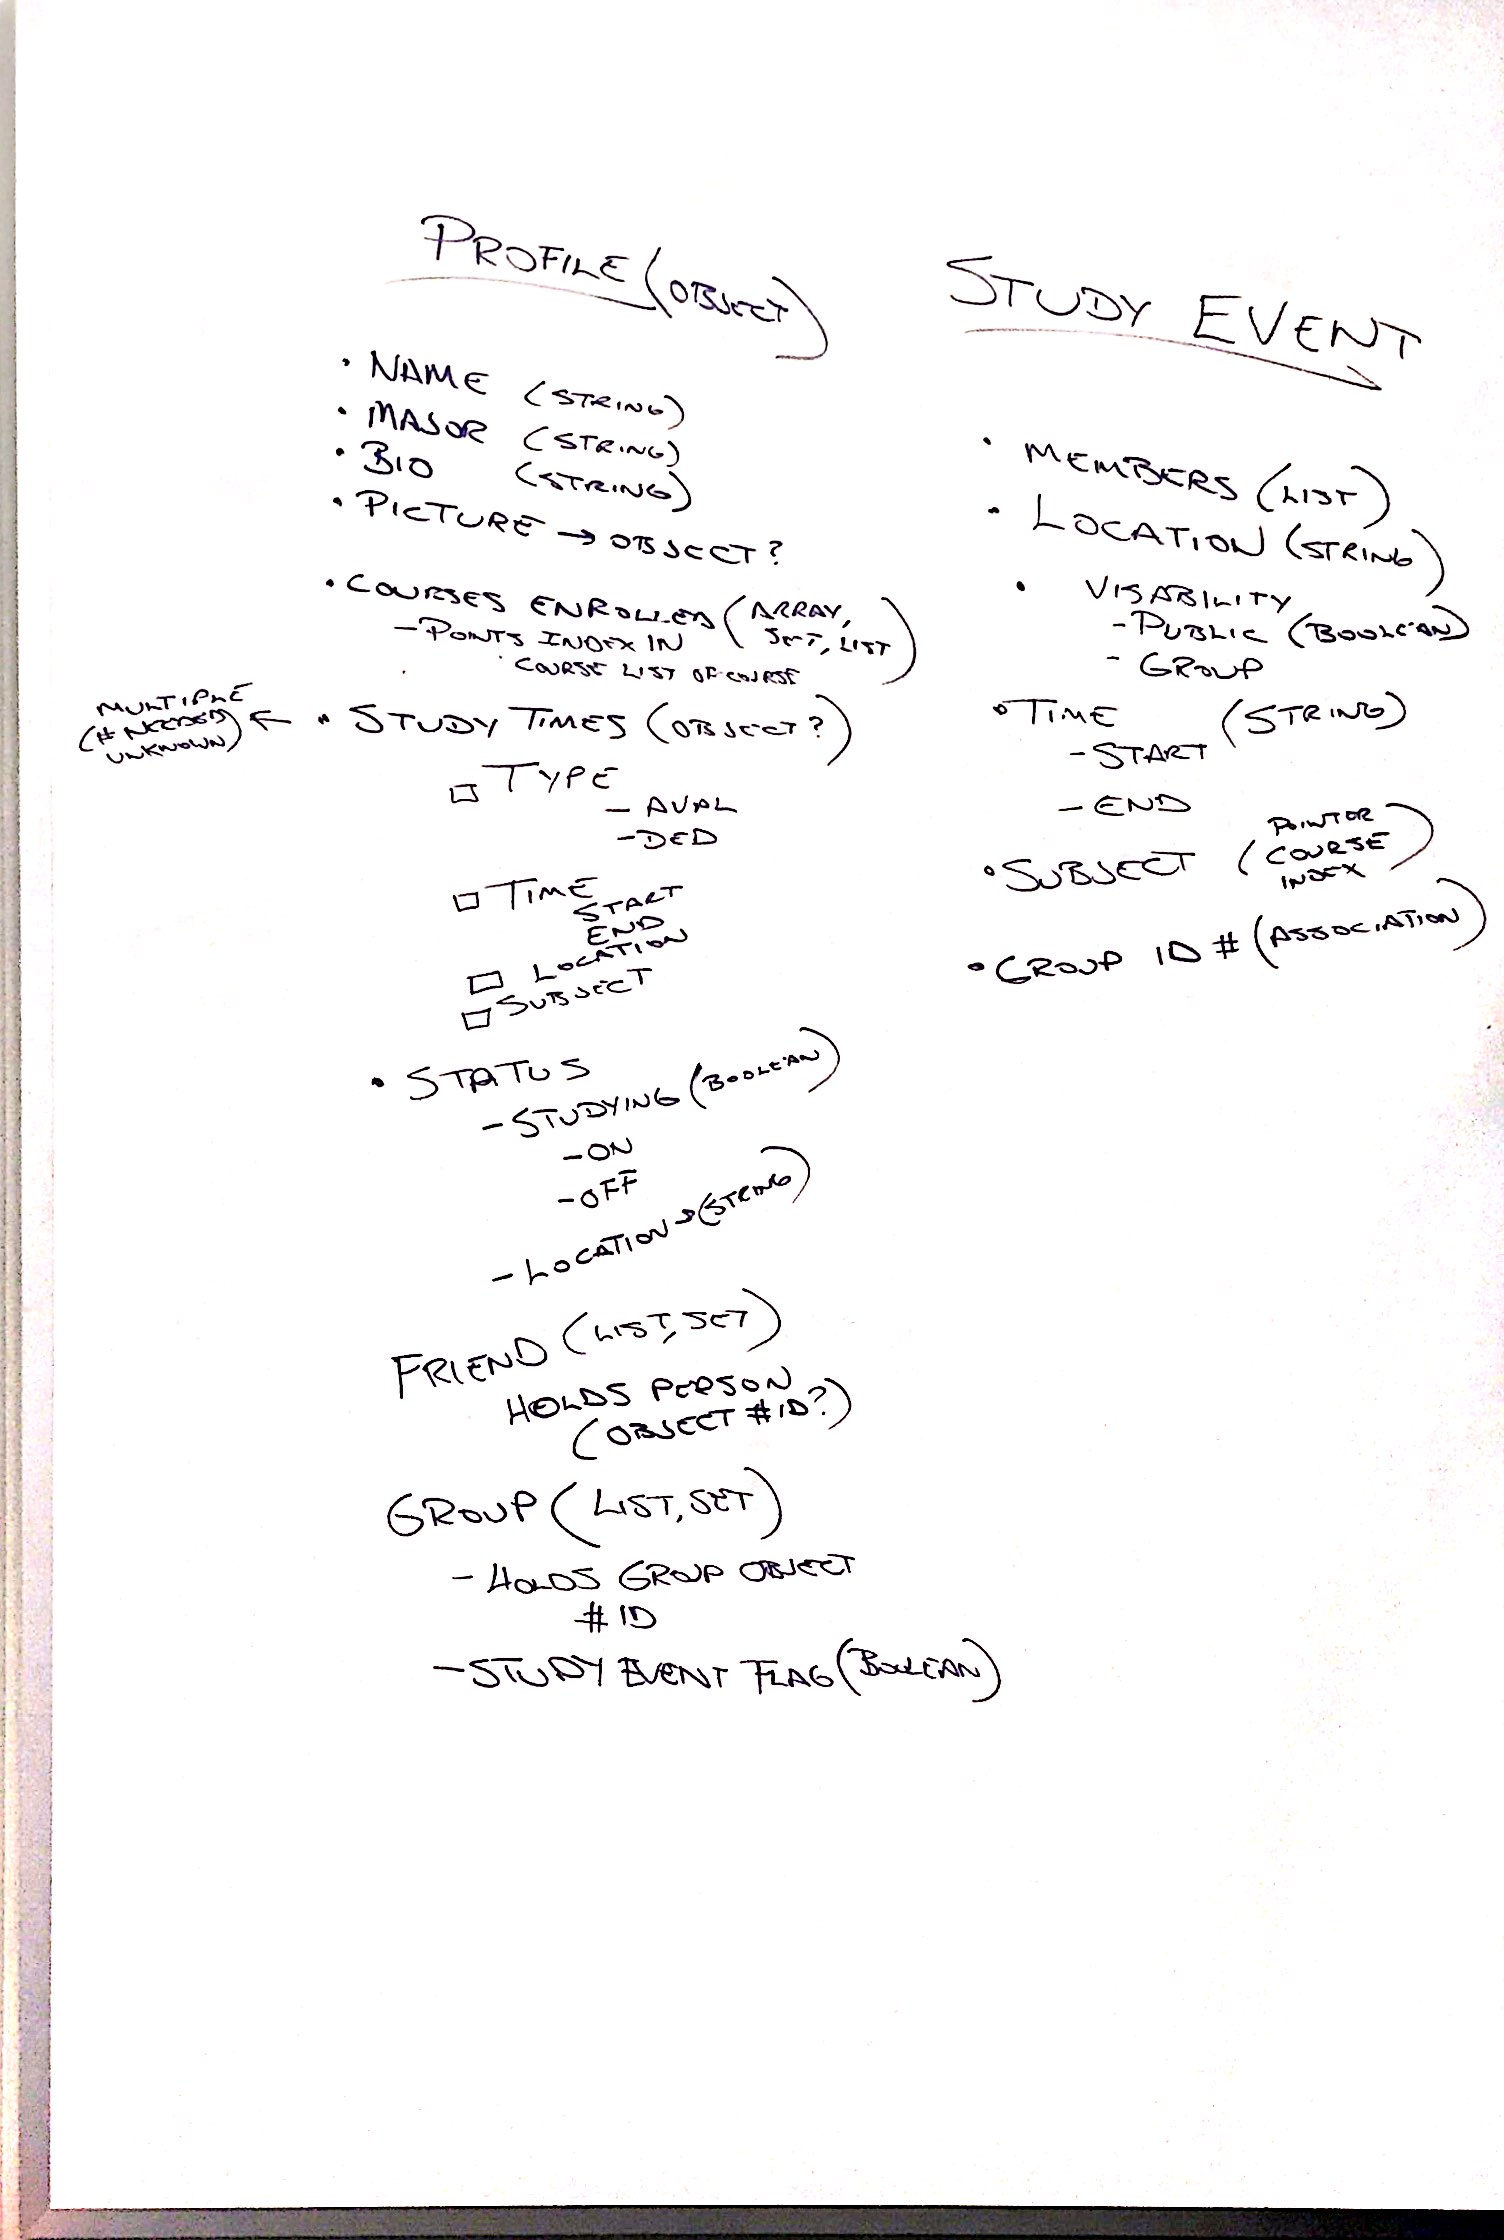 PROFILE (OBJECT)
• NAME (STRING)
• MAJOR (STRING)
• BIO (STRING)
• PICTURE → OBJECT?
• COURSES ENROLLED (ARRAY, SET, LIST)
- POINTS INDEX IN
COURSE LIST OF COURSE
MULTIPLE
(# NEEDED
UNKNOWN)
← • STUDY TIMES (OBJECT?)
□ TYPE
- AVAL
- DED
□ TIME
START
END
□ LOCATION
□ SUBJECT
• STATUS
- STUDYING (BOOLEAN)
- ON
- OFF
- LOCATION → (STRING)
FRIEND (LIST, SET)
HOLDS PERSON
(OBJECT # ID?)
GROUP (LIST, SET)
- HOLDS GROUP OBJECT
# ID
- STUDY EVENT FLAG (BOOLEAN)
STUDY EVENT
• MEMBERS (LIST)
• LOCATION (STRING)
• VISABILITY
- PUBLIC (BOOLEAN)
- GROUP
• TIME (STRING)
- START
- END
• SUBJECT (POINTOR
COURSE
INDEX)
• GROUP ID # (ASSOCIATION)